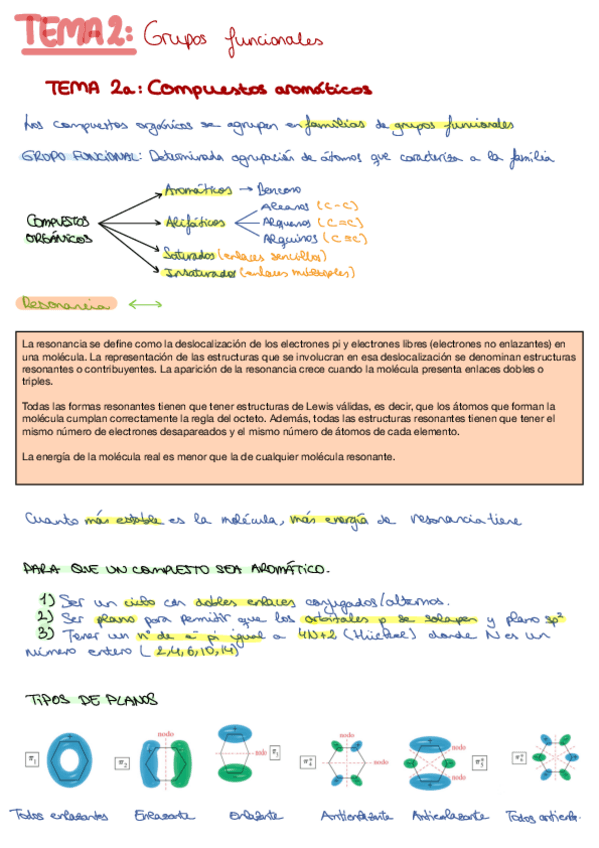 TEMA 2: Grupos funcionales
TEMA 2a: Compuestos aromáticos
Los compuestos orgánicos se agrupan en familias de grupos funcionales
GRUPO FUNCIONAL: Determinada agrupación de átomos que caracteriza a la familia
Aromáticos → Benceno
Alcanos (C-C)
COMPUESTOS ORGÁNICOS
Alifáticos
Alquenos (C=C)
Alquinos (C≡C)
Saturados (enlaces sencillos)
Insaturados (enlaces múltiples)
Resonancia ↔
La resonancia se define como la deslocalización de los electrones pi y electrones libres (electrones no enlazantes) en
una molécula. La representación de las estructuras que se involucran en esa deslocalización se denominan estructuras
resonantes o contribuyentes. La aparición de la resonancia crece cuando la molécula presenta enlaces dobles o
triples.
Todas las formas resonantes tienen que tener estructuras de Lewis válidas, es decir, que los átomos que forman la
molécula cumplan correctamente la regla del octeto. Además, todas las estructuras resonantes tienen que tener el
mismo número de electrones desapareados y el mismo número de átomos de cada elemento.
La energía de la molécula real es menor que la de cualquier molécula resonante.
Cuanto más estable es la molécula, más energía de resonancia tiene
PARA QUE UN COMPUESTO SEA AROMÁTICO.
1) Ser un ciclo con dobles enlaces conjugados/alternos.
2) Ser plano para permitir que los orbitales p se solapen y plano sp²
3) Tener un nº de e⁻ pi igual a 4N+2 (Hückel) donde N es un
número entero (2,4,6,10,14)
TIPOS DE PLANOS
nodo
nodo
nodo
nodo
nodo
nodo
π1
π2
π3
π4*
π5*
π6*
Todos enlazantes
Enlazante
enlazante
Antienlazante
Antienlazante
Todos antienl.